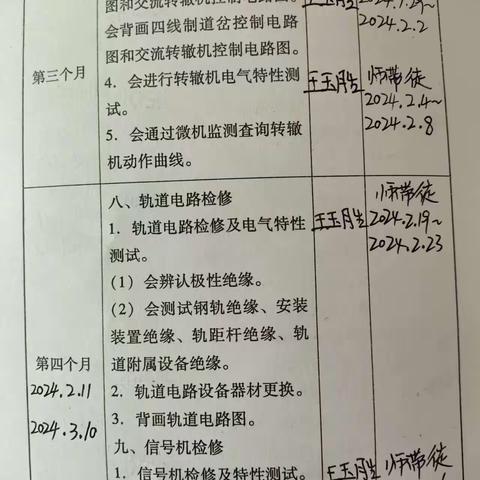 图和交流转辙机控制电路图。
王玉胜
2024.1.29~
2024.2.2
会背画四线制道岔控制电路
图和交流转辙机控制电路图。
第三个月
4．会进行转辙机电气特性测
试。
王玉胜
师带徒
2024.2.4~
2024.2.8
5．会通过微机监测查询转辙
机动作曲线。
八、轨道电路检修
1．轨道电路检修及电气特性
测试。
王玉胜
师带徒
2024.2.19~
2024.2.23
（1）会辨认极性绝缘。
（2）会测试钢轨绝缘、安装
装置绝缘、轨距杆绝缘、轨
道附属设备绝缘。
第四个月
2024.2.11
2024.3.10
2．轨道电路设备器材更换。
3．背画轨道电路图。
九、信号机检修
1．信号机检修及特性测试。
王玉胜
师带徒